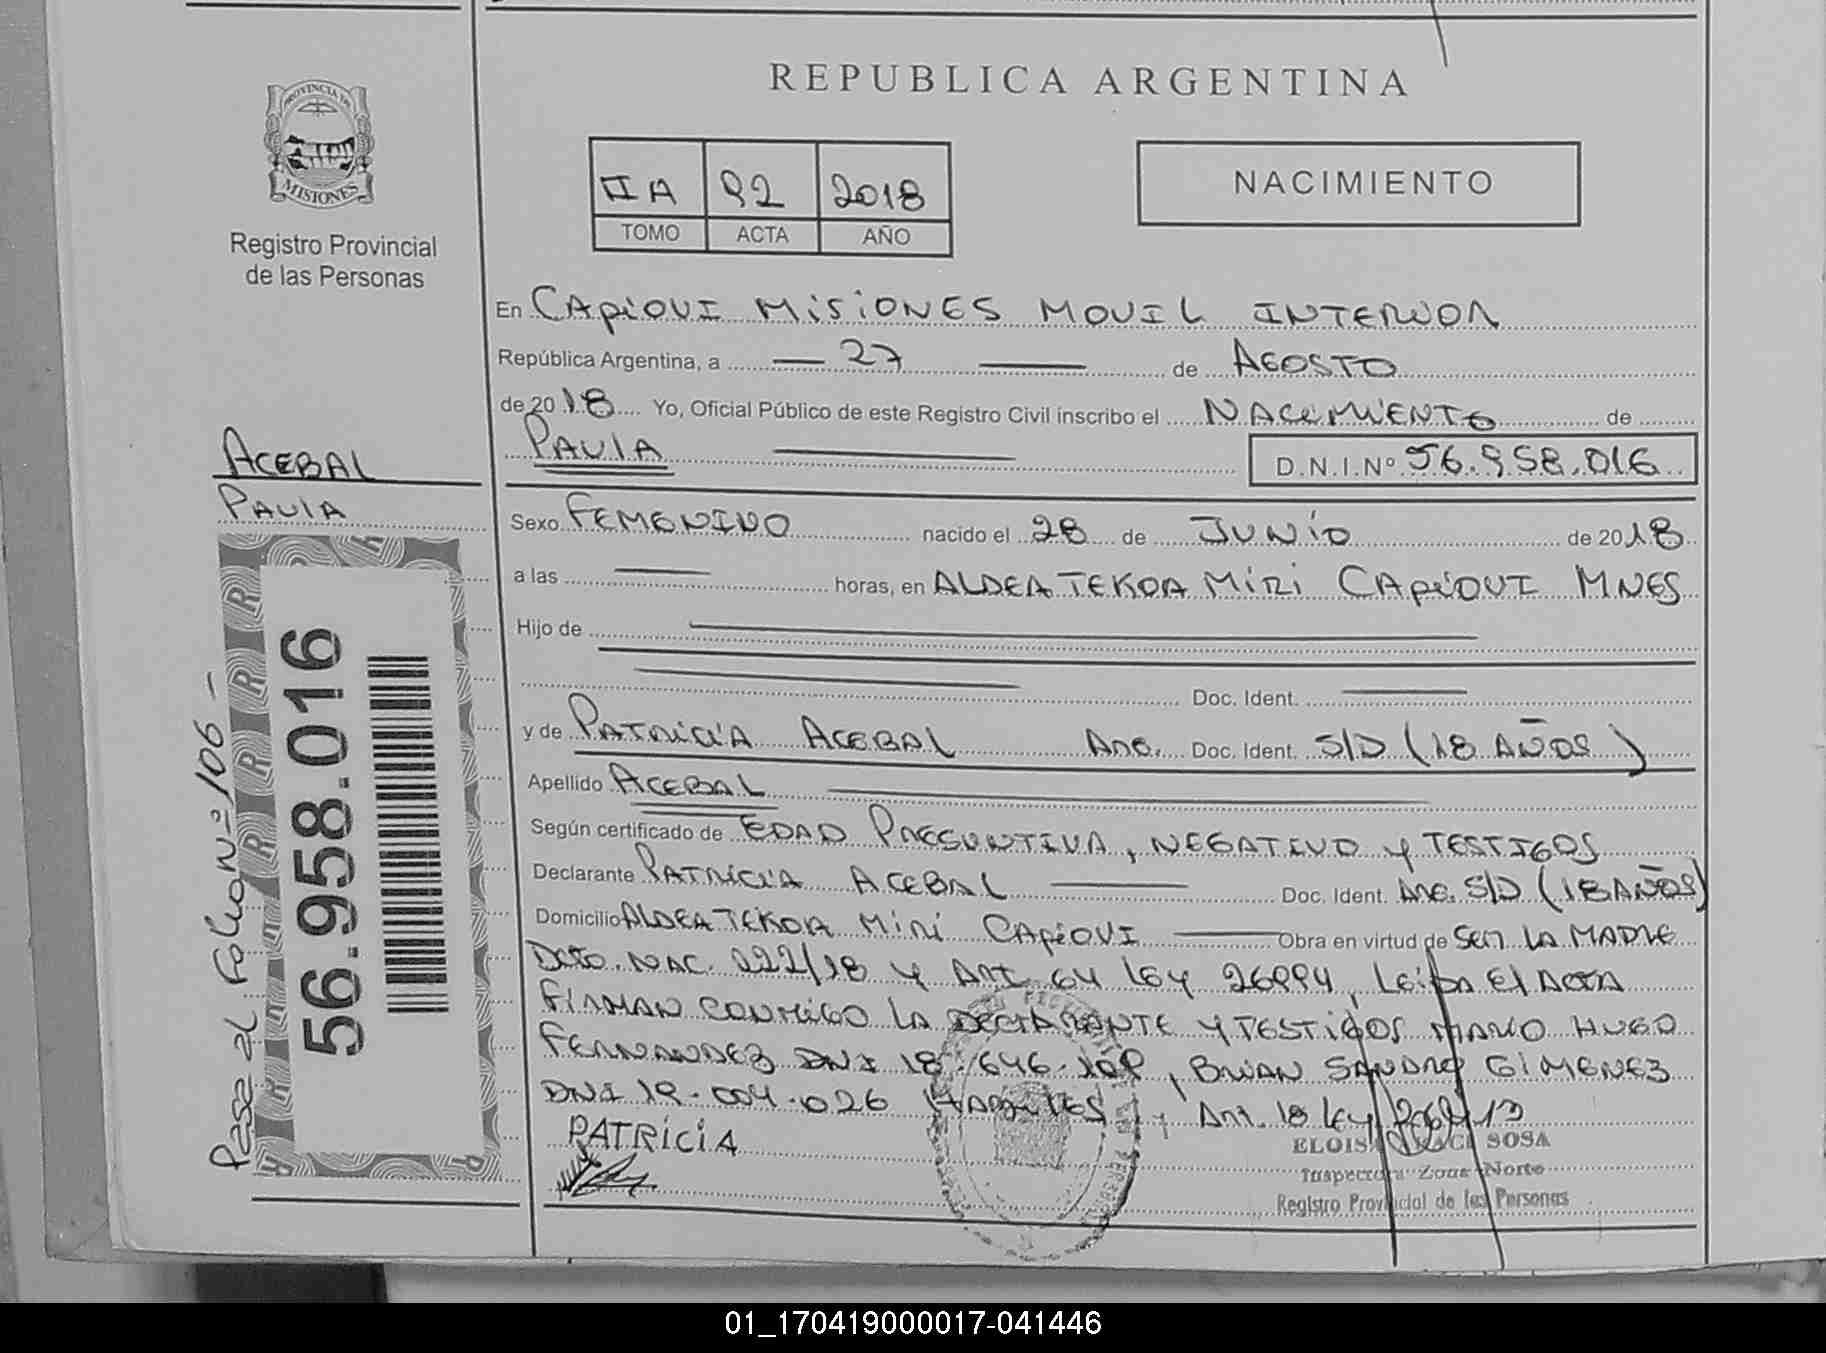 REPUBLICA ARGENTINA
PROVINCIA DE
MISIONES
Registro Provincial
de las Personas
IIA 92 2018
TOMO ACTA AÑO
NACIMIENTO
En CAPIOVI MISIONES MOVIL INTERIOR
República Argentina, a 27 de AGOSTO
de 2018 Yo, Oficial Público de este Registro Civil inscribo el NACIMIENTO de
PAULA D.N.I.Nº 56.958.016
ACEBAL
PAULA
Sexo FEMENINO nacido el 28 de JUNIO de 2018
a las horas, en ALDEA TEKOA MIRI CAPIOVI MNES
Hijo de
Doc. Ident.
y de PATRICIA ACEBAL ARG. Doc. Ident. S/D (18 AÑOS)
Apellido ACEBAL
Según certificado de EDAD PRESUNTIVA, NEGATIVO Y TESTIGOS
Declarante PATRICIA ACEBAL Doc. Ident. ARG. S/D (18 AÑOS)
Domicilio ALDEA TEKOA MIRI CAPIOVI Obra en virtud de SER LA MADRE
DCTO. NAC. 222/18 Y ART. 64 LEY 26994, LEIDA EL ACTA
FIRMAN CONMIGO LA DECLARANTE Y TESTIGOS MARIO HUGO
FERNANDEZ DNI 18.646. , BRIAN SANDRO GIMENEZ
DNI 19.004.026 ART. 18 LEY
PATRICIA
SOSA
Inspectora Zona Norte
Registro Provincial de las Personas
56.958.016
Pasa al Folio Nº 106 -
01_170419000017-041446